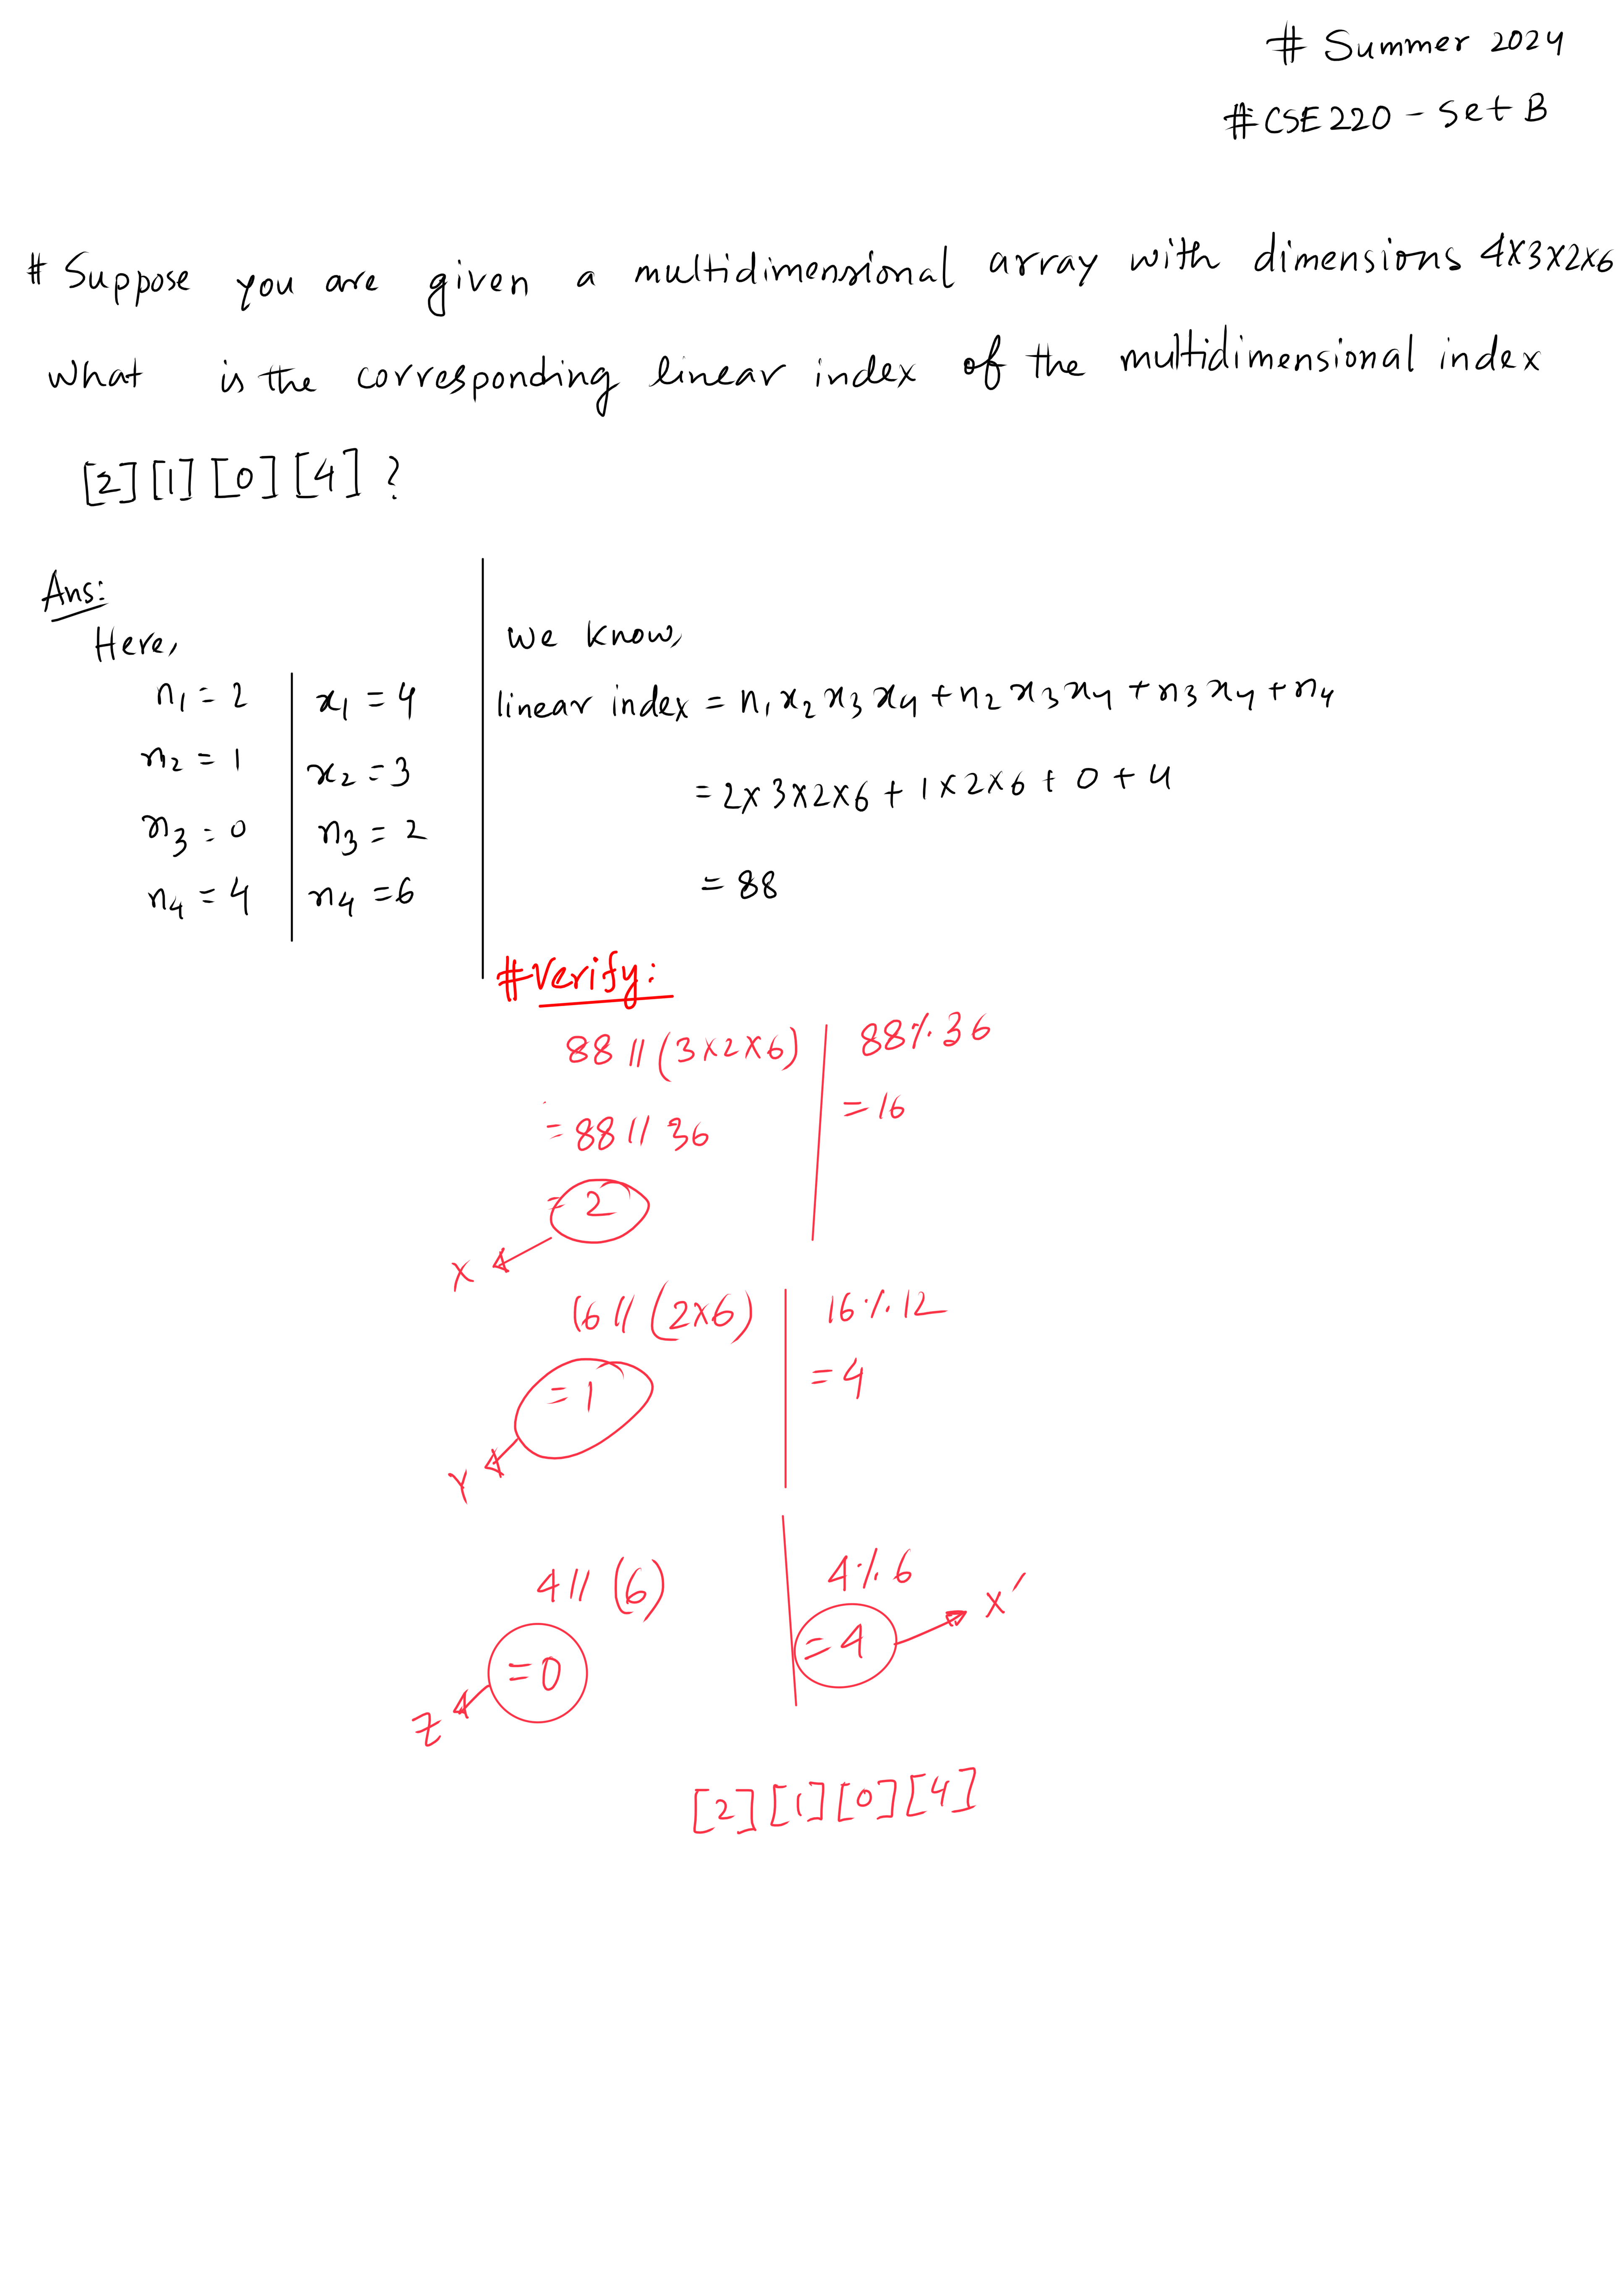 # Summer 2024
# CSE220 - Set B
# Suppose you are given a multidimensional array with dimensions 4x3x2x6
What is the corresponding linear index of the multidimensional index
[2][1][0][4]?
Ans:
Here,
n₁ = 2
n₂ = 1
n₃ = 0
n₄ = 4
x₁ = 4
x₂ = 3
n₃ = 2
n₄ = 6
We know,
linear index = n₁x₂x₃x₄ + n₂x₃x₄ + n₃x₄ + n₄
= 2x3x2x6 + 1x2x6 + 0 + 4
= 88
# Verify:
88 // (3x2x6)
= 88 // 36
= 2
X
88 % 36
= 16
16 // (2x6)
= 1
Y
16 % 12
= 4
4 // (6)
= 0
Z
4 % 6
= 4
X'
[2][1][0][4]